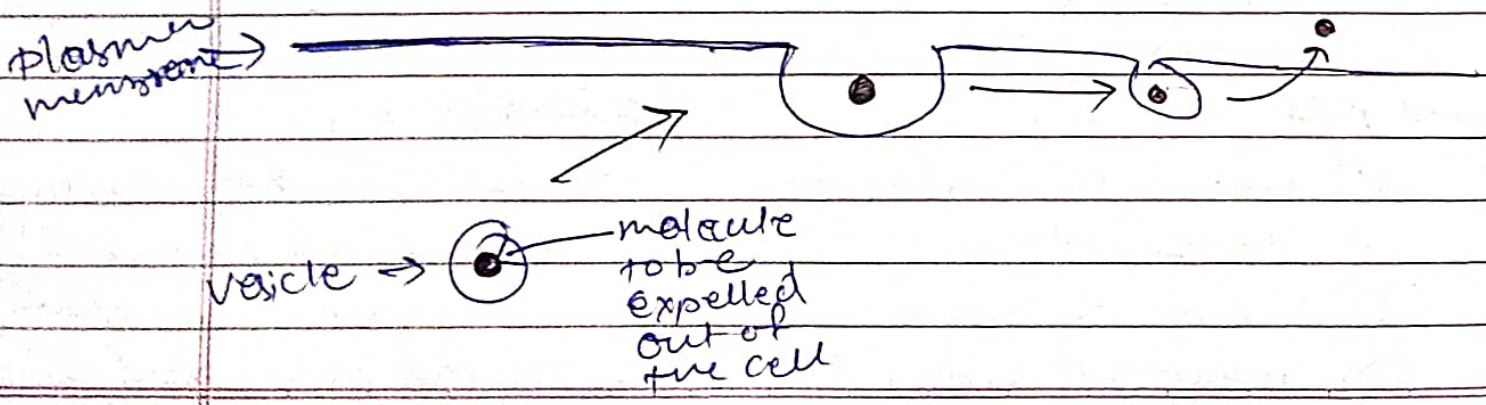 plasma
membrane
vesicle
molecule
to be
expelled
out of
the cell